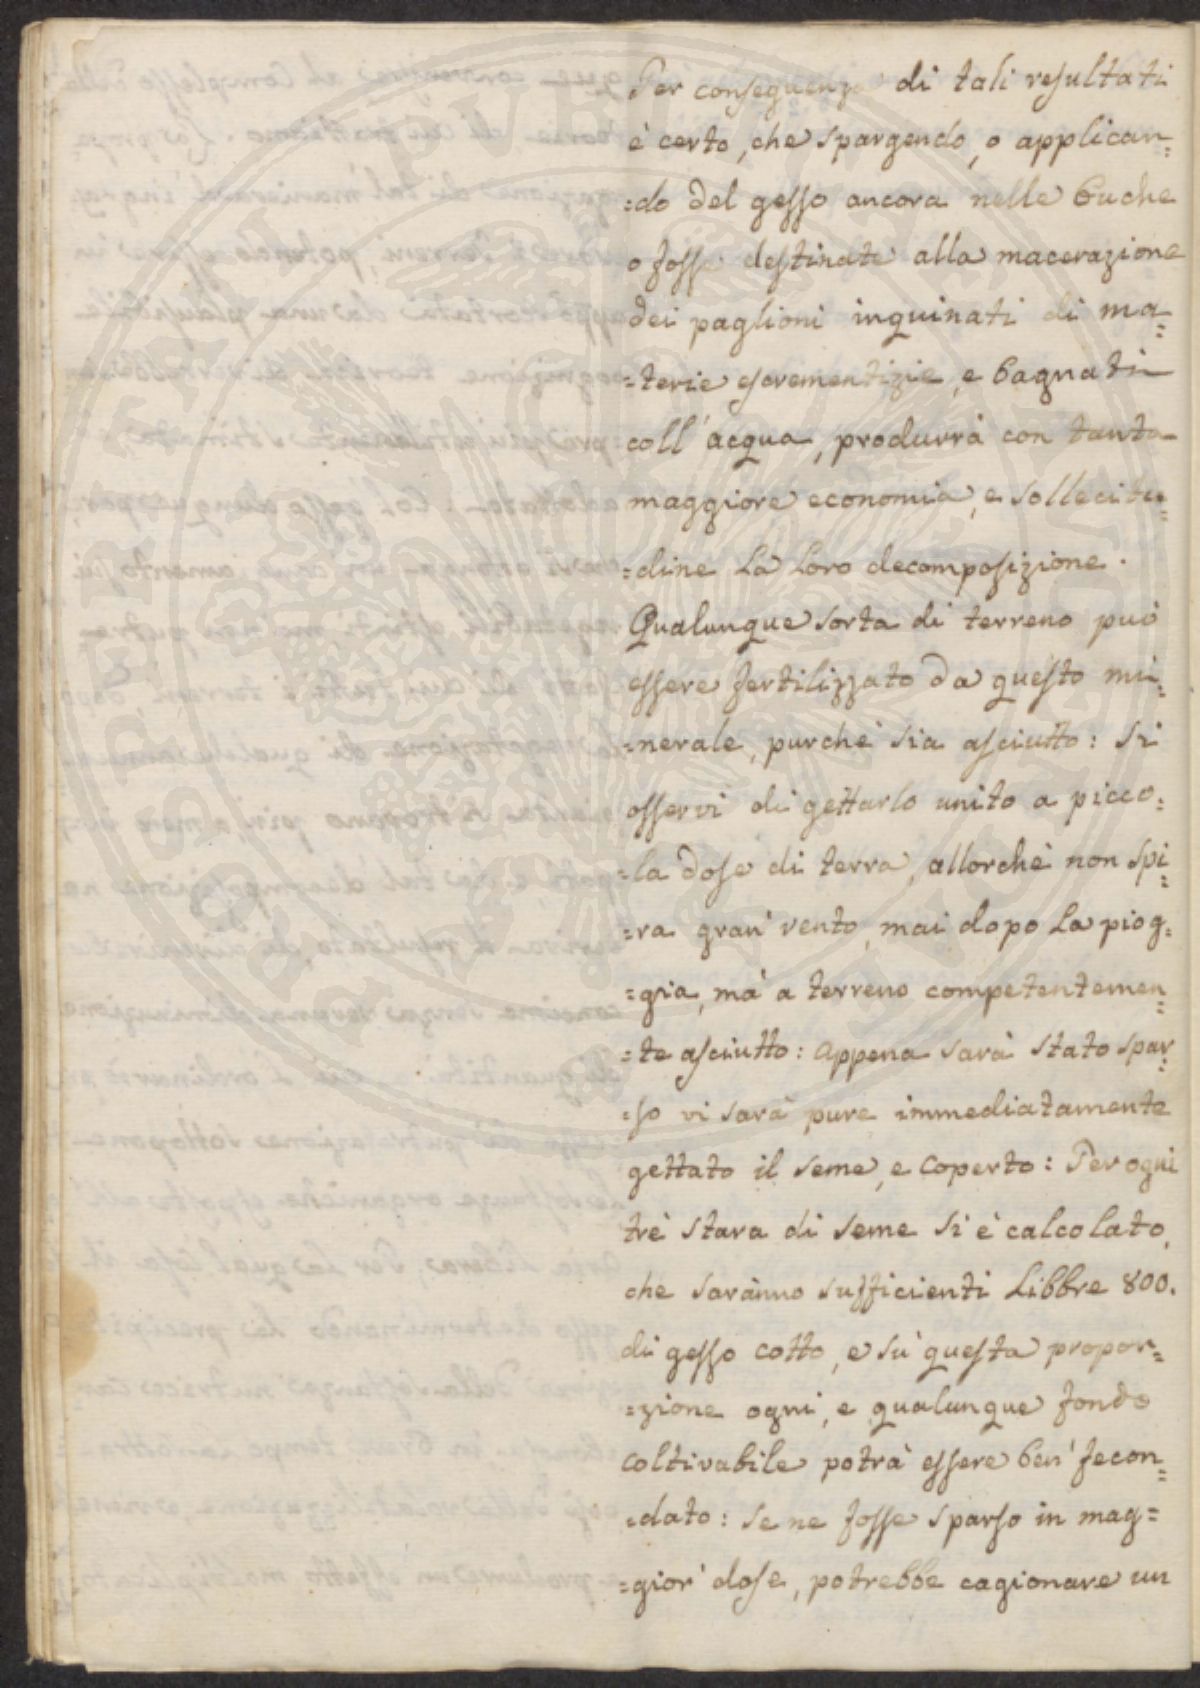 Per conseguenza di tali resultati
è certo, che spargendo, o applican=
=do del gesso ancora nelle buche
o fosse destinate alla macerazione
dei paglioni inquinati di ma=
=terie escrementizie, e bagnati
coll' acqua, produrrà con tanta
maggiore economia, e sollecitu=
=dine La Loro decomposizione.
Qualunque sorta di terreno può
essere fertilizzato da questo mi=
=nerale, purchè sia asciutto: si
osservi di gettarlo unito a picco=
=la dose di terra, allorchè non spi=
=ra gran' vento, mai dopo La piog=
=gia, mà a terreno competentemen=
=te asciutto: appena sarà stato spar=
=so vi sarà pure immediatamente
gettato il seme, e coperto: Per ogni
trè stara di seme si è calcolato,
che saranno sufficienti Libbre 800.
di gesso cotto, e sù questa propor=
=zione ogni, e qualunque fondo
coltivabile potrà essere ben' fecon=
=dato: se ne fosse sparso in mag=
=gior' dose, potrebbe cagionare un